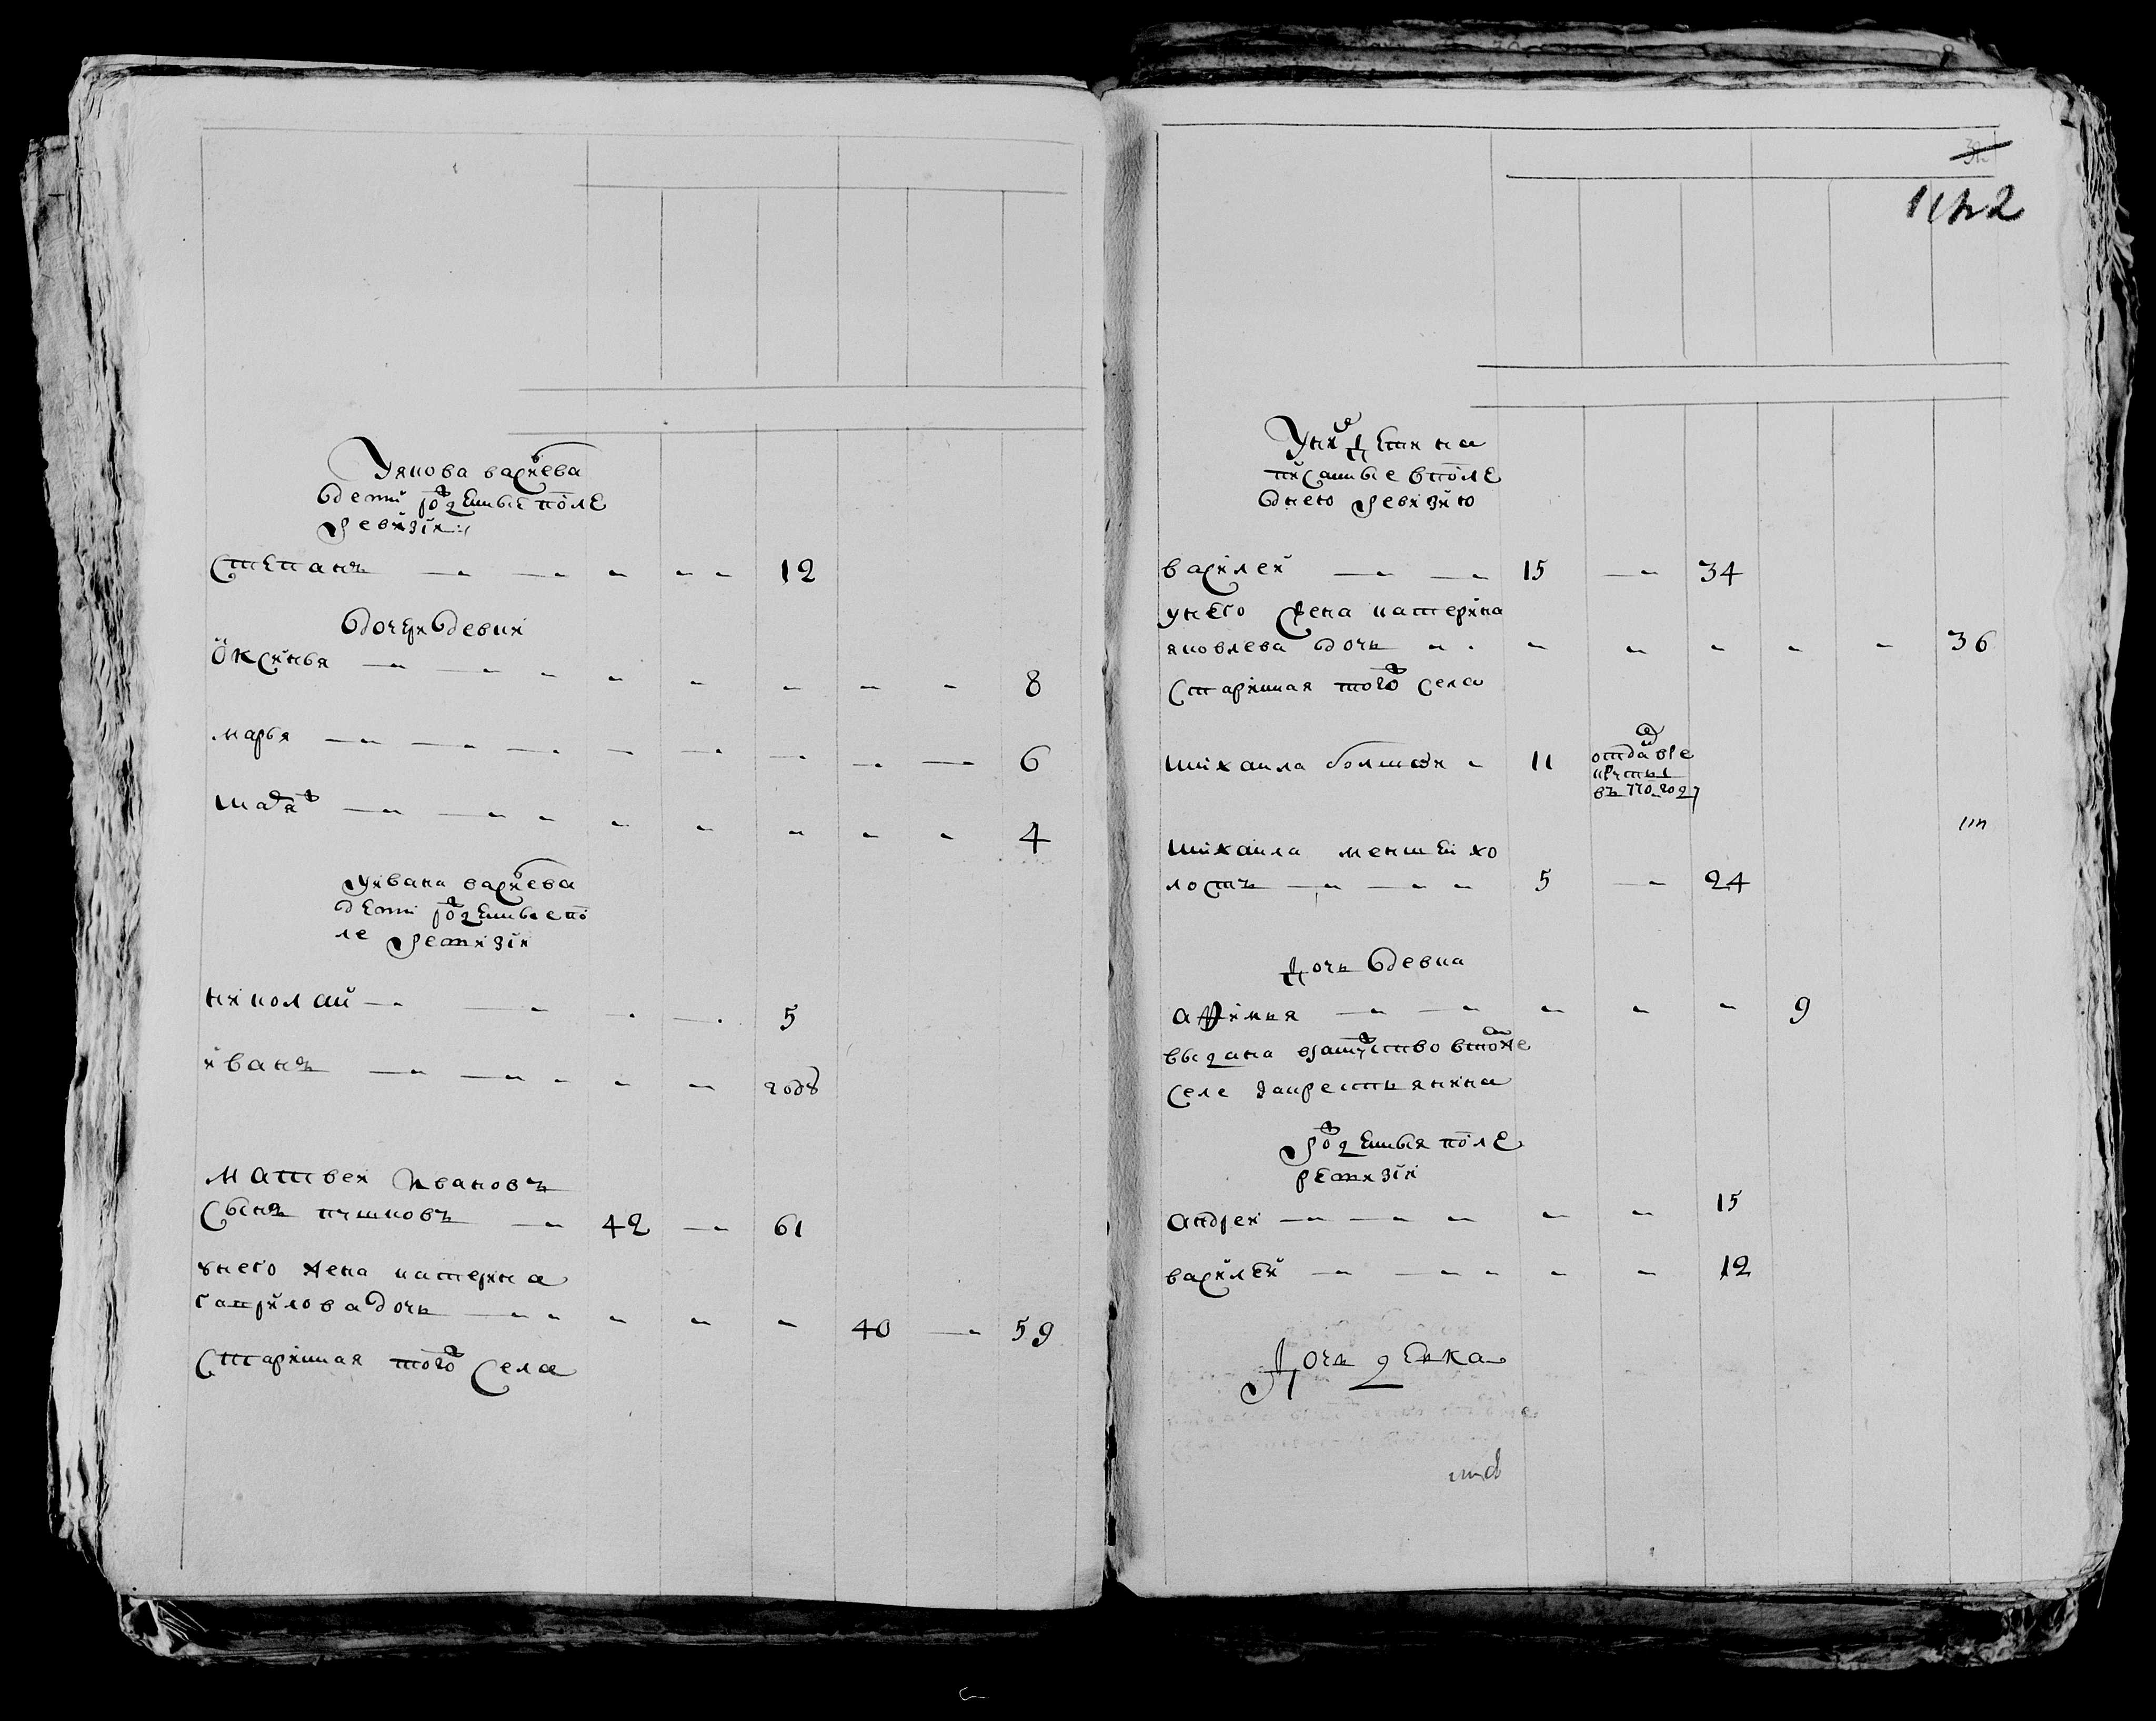 Уякова васильева
дети рожденные после
ревизии:
степанъ 12
дочери девки
оксинья 8
марья 6
4
Уивана васильева
дети рожденные по
сле ревизии
николай 5
иванъ годъ
матвей Ивановъ
сынъ 42 61
унего жена катерина
гаврилова дочь 40 59
старинная тогож села
1142
Уних дети на
писанные впосле
днею ревизию
василей 15 34
унего жена катерина
яковлева дочь 36
старинная тогож села
михаила большой 11 отдан вре
круты
въ 770 году
михаила меншей хо
лостъ 5 24
дочь девка
афимья 9
выдана взамужство втомже
селе закрестьянина
рожденныя после
ревизии
андрей 15
василей 12
дочь девка